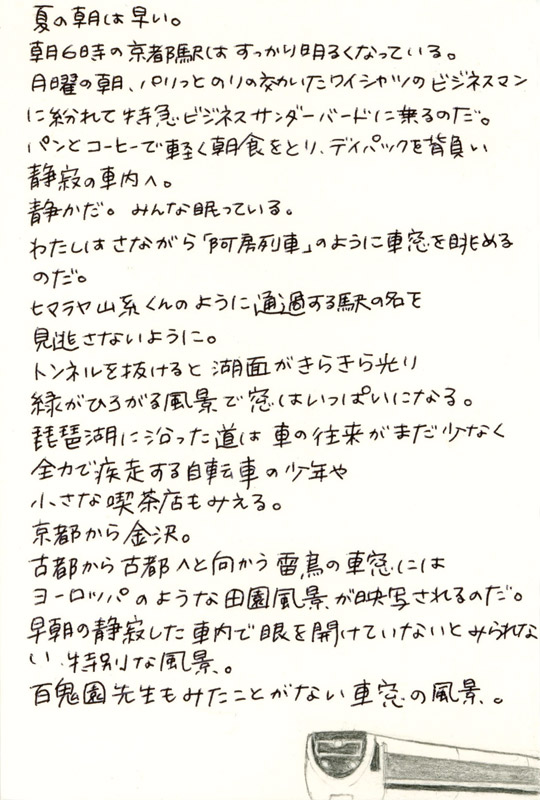 夏の朝は早い。
朝6時の京都駅はすっかり明るくなっている。
月曜の朝、パリっとのりの効いたワイシャツのビジネスマン
に紛れて特急ビジネスサンダーバードに乗るのだ。
パンとコーヒーで軽く朝食をとり、デイパックを背負い
静寂の車内へ。
静かだ。みんな眠っている。
わたしはさながら「阿房列車」のように車窓を眺める
のだ。
ヒマラヤ山系くんのように通過する駅の名を
見逃さないように。
トンネルを抜けると湖面がきらきら光り
緑がひろがる風景で窓はいっぱいになる。
琵琶湖に沿った道は車の往来がまだ少なく
全力で疾走する自転車の少年や
小さな喫茶店もみえる。
京都から金沢。
古都から古都へと向かう雷鳥の車窓には
ヨーロッパのような田園風景が映写されるのだ。
早朝の静寂した車内で眼を開けていないとみられな
い、特別な風景。
百鬼園先生もみたことがない車窓の風景。